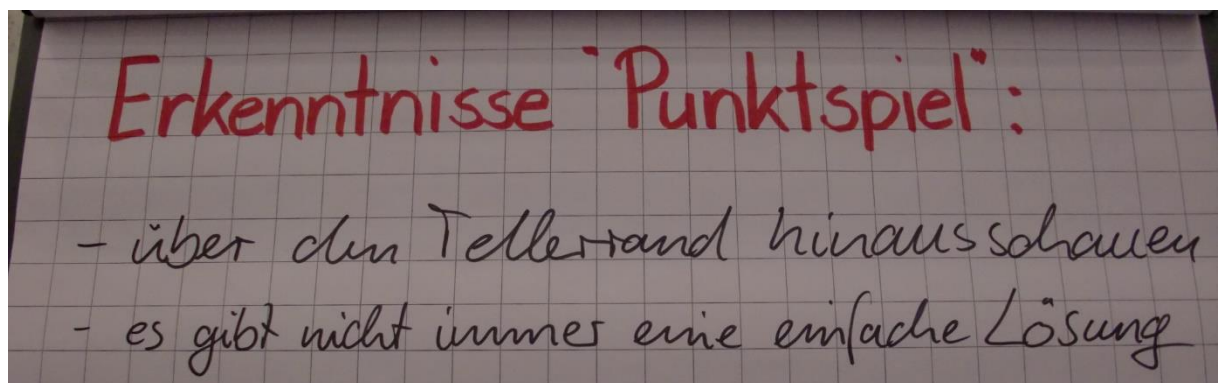 Erkenntnisse "Punktspiel":
- über den Tellerrand hinausschauen
- es gibt nicht immer eine einfache Lösung